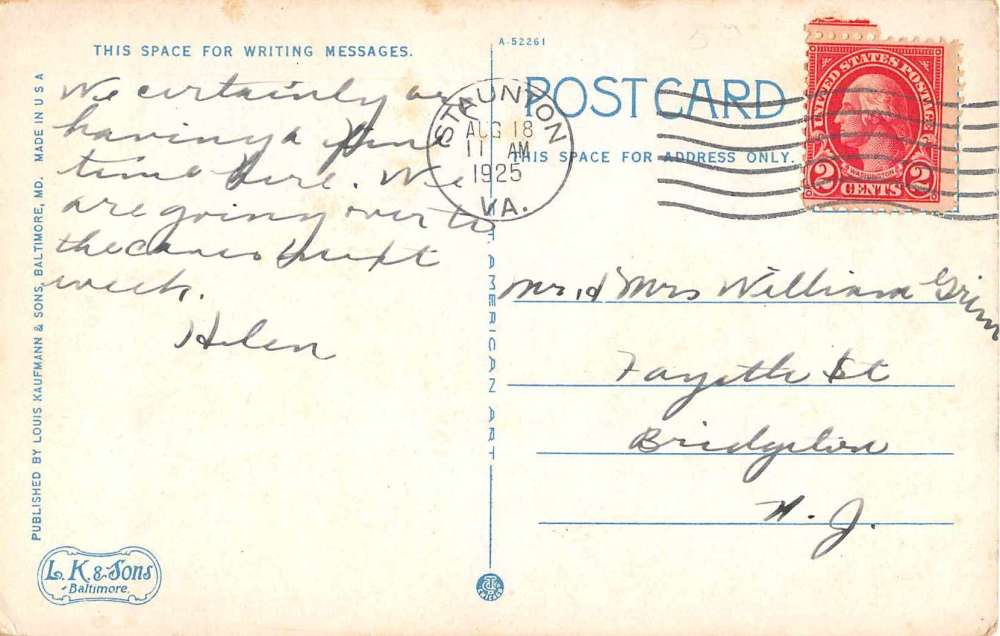 THIS SPACE FOR WRITING MESSAGES.
We certainly are
having a fine
time here. We
are going over to
the caves next
week.
Helen
PUBLISHED BY LOUIS KAUFMANN & SONS, BALTIMORE, MD. MADE IN U S A
L. K. & Sons
Baltimore
A-52261
POST CARD
THIS SPACE FOR ADDRESS ONLY.
STAUNTON
AUG 18
11 AM
1925
VA.
UNITED STATES POSTAGE
WASHINGTON
2 CENTS 2
AMERICAN ART
Mr. & Mrs William Grim
Fayette St
Bridgeton
N. J.